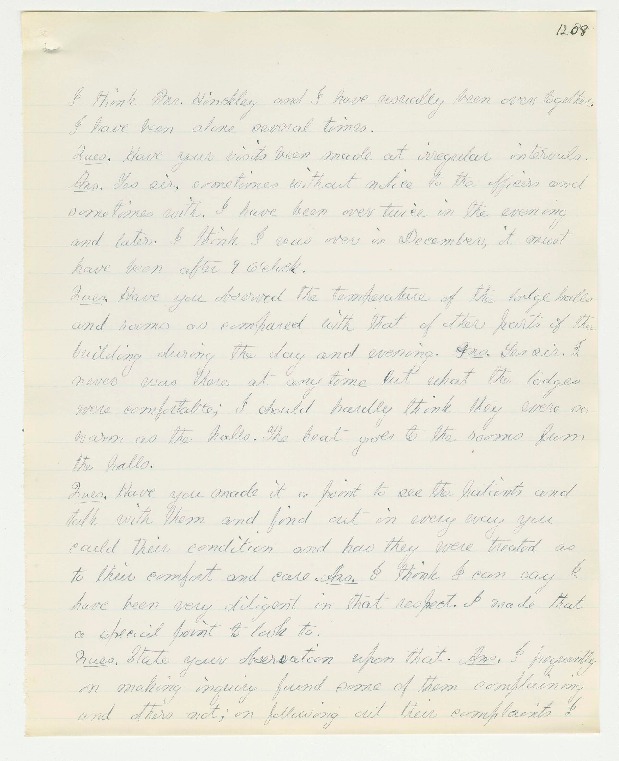 1208
I think Mr. Hinckley and I have usually been over together.
I have been alone several times.
Ques. Have your visits been made at irregular intervals.
Ans. Yes sir, sometimes without notice to the officers and
sometimes with. I have been over twice in the evening
and later. I think I was over in December, it must
have been after 9 o'clock.
Ques. Have you observed the temperature of the lodge halls
and rooms as compared with that of other parts of the
building during the day and evening. Ans. Yes sir. I
never was there at any time but what the lodges
were comfortable; I should hardly think they were as
warm as the halls. The heat goes to the rooms from
the halls.
Ques. Have you made it a point to see the patients and
talk with them and find out in every way you
could their condition and how they were treated as
to their comfort and care. Ans. I think I can say I
have been very diligent in that respect. I made that
a special point to look to.
Ques. State your observation upon that. Ans. I frequently
on making inquiry found some of them complaining
and others not; on following out their complaints I